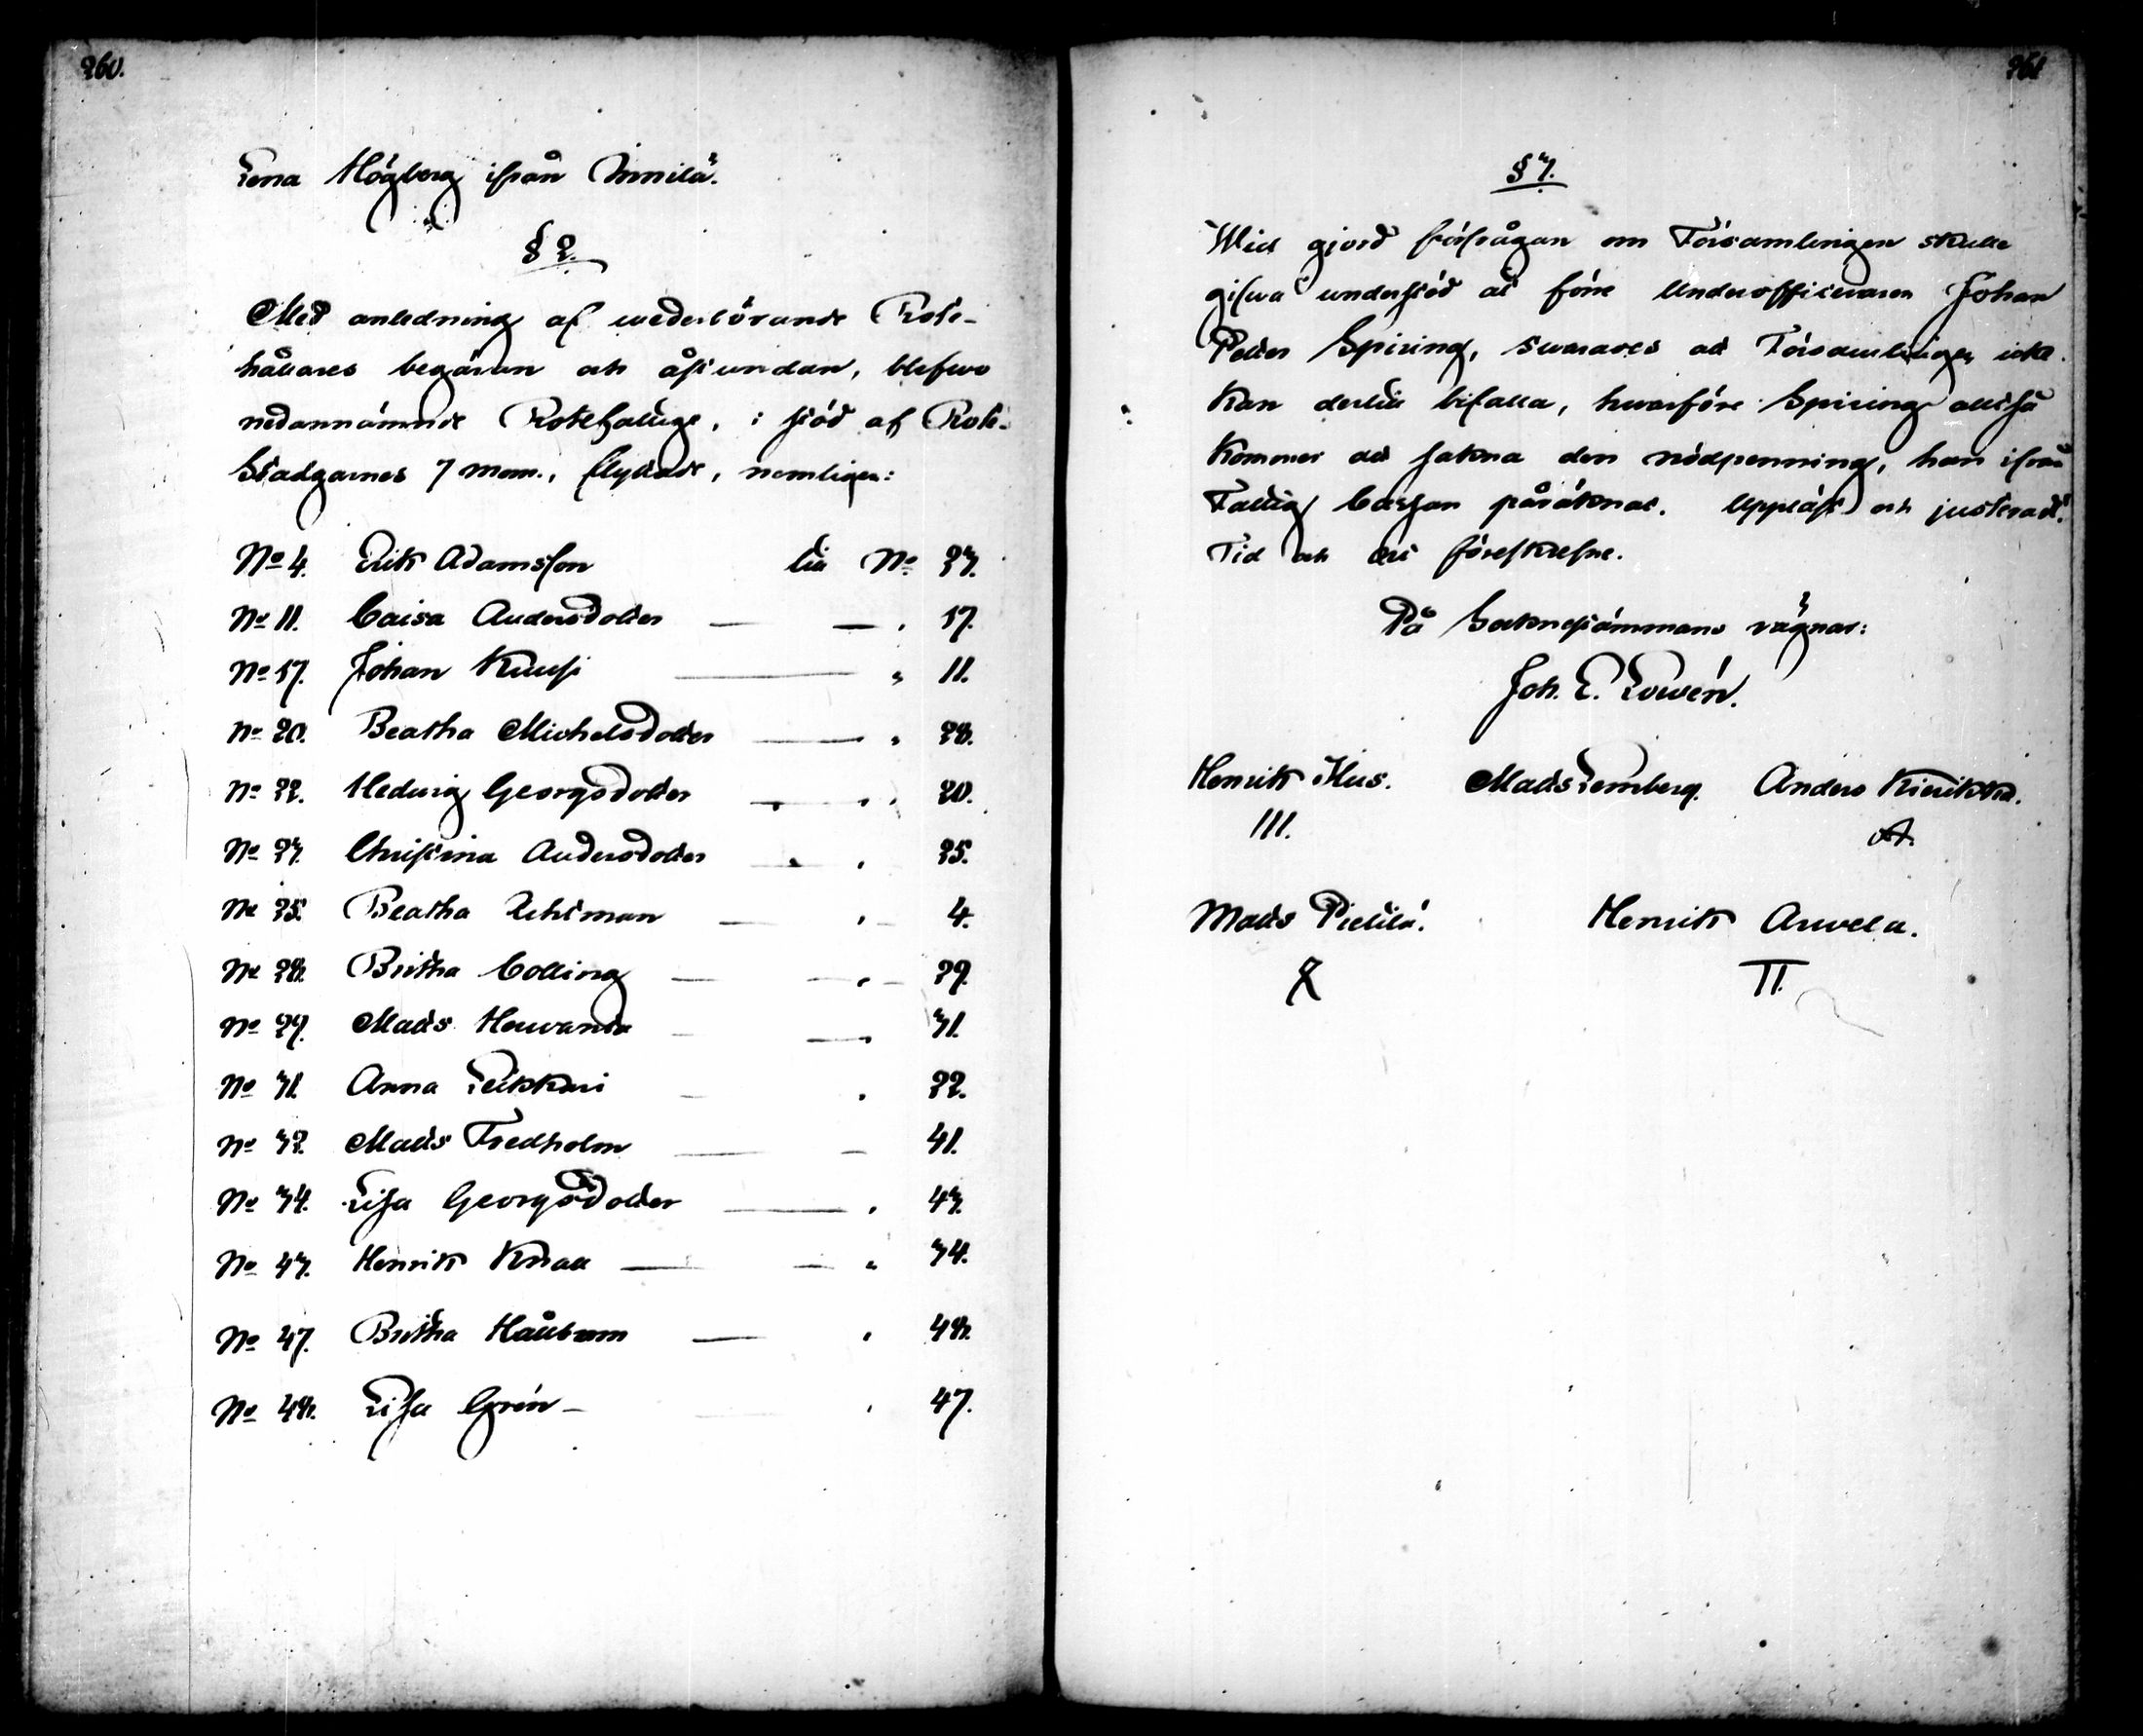 260.
Lena Högberg ifrån Immilä.
§ 2.
Med anledning af wederbörande Rote-
hållares begäran och åstundan, blefwo
nedannämnde Rotefattige, i stöd af Rote-
Stadgarnes 7 mom., flyttade, nemligen:
No 4. Erik Adamsson till No 23.
No 11. Caisa Andersdotter — — " 17.
No 17. Johan Kuusi — " 11.
No 20. Beatha Michelsdotter — " 28.
No 22. Hedwig Georgsdotter — " 20.
No 23. Christina Andersdotter — " 25.
No 25. Beatha Uhlman — " 4.
No 28. Britha Colling — — " 29.
No 29. Matts Herwanta — — " 31.
No 31. Anna Leikkari — " 22.
No 32. Matts Fredholm — — 41.
No 34. Lisa Georgsdotter — " 43.
No 43. Henrik Knall — — " 34.
No 47. Britha Hållbom — " 48.
No 48. Lisa Grön — " 47.
261
§ 3.
Wid gjord förfrågan om Församlingen skulle
gifwa understöd åt förre Underofficeraren Johan
Petter Spiring, swarades att Församlingen icke
kan dertill bifalla, hwarföre Spiring alltså
kommer att sakna den nödpenning, han ifrån
Fattig Cassan påräknat. Uppläst och justeradt.
Tid och Ort föreskrefne.
På Socknestämmans vägnar:
Joh. E. Lowén.
Henrik Hus. Matts Lemberg. Anders Kierikka.
III. A.
Matts Pietilä. Henrik Arwela.
X II.